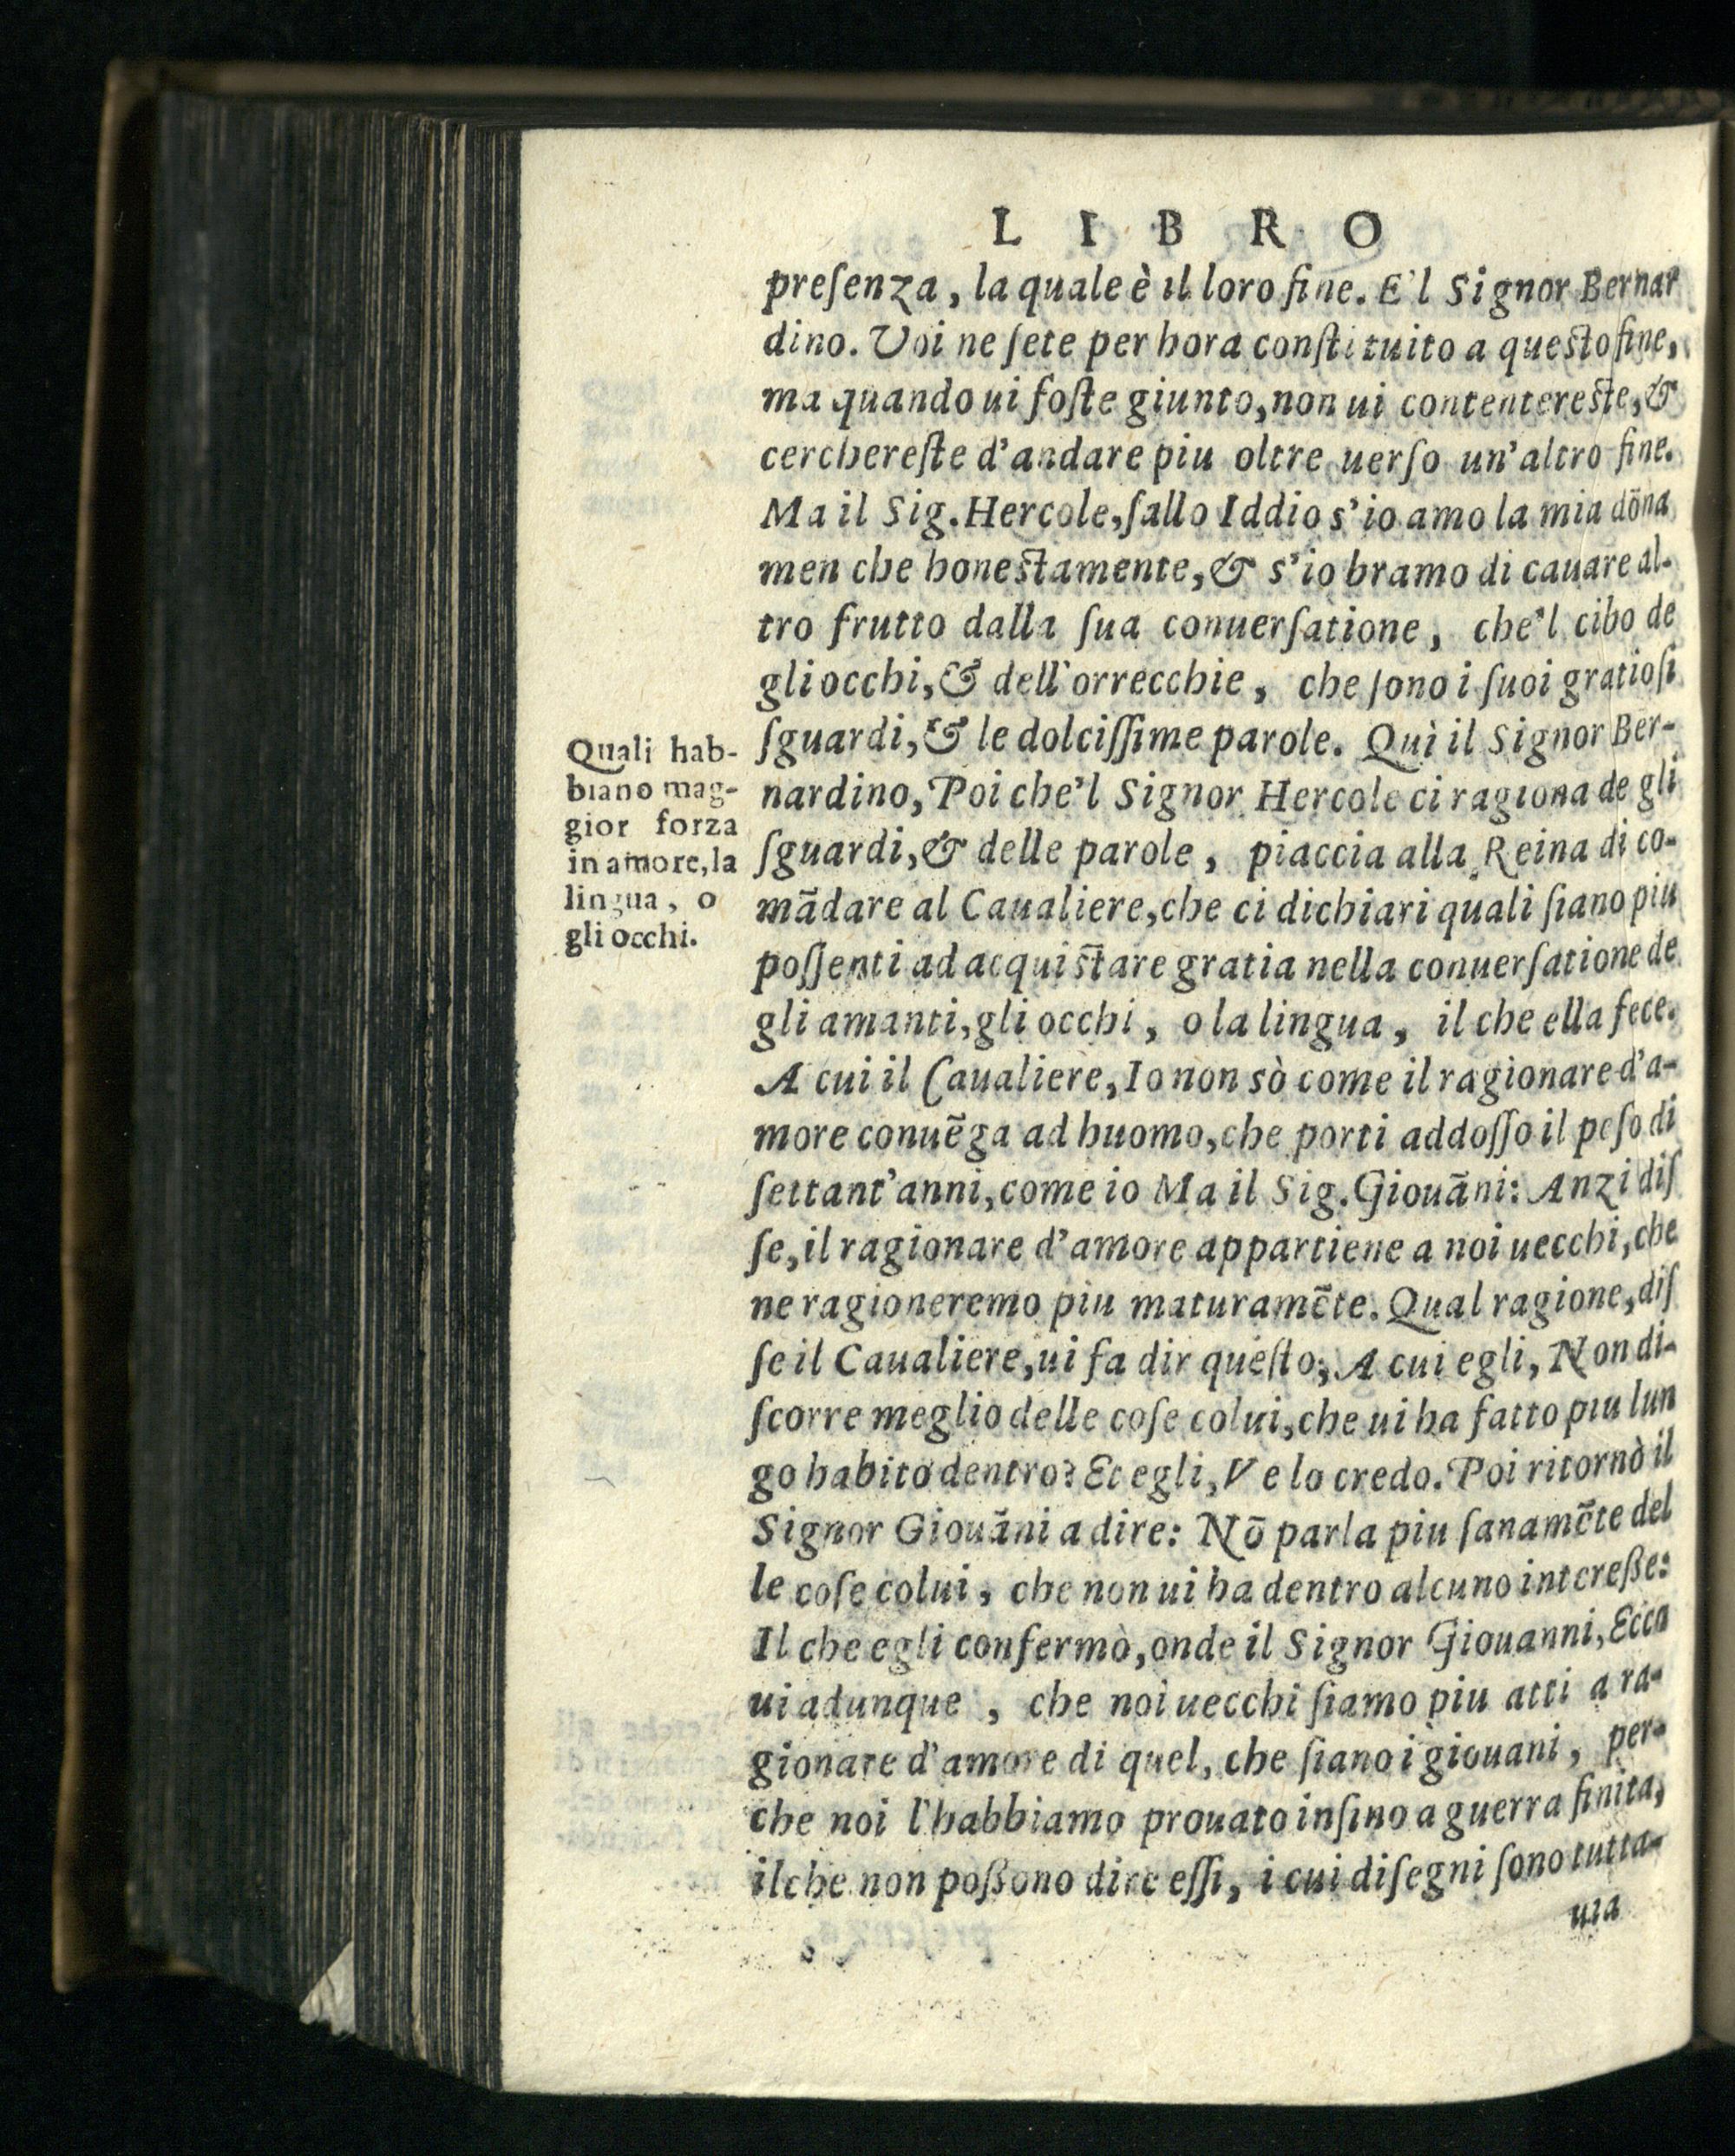 LIBRO
preſenza, la quale è il loro fine. E'l Signor Bernar
dino. Voi ne ſete per hora conſtituito a queſto fine,
ma quando ui foſte giunto, non ui contentereſte, &
cerchereſte d'andare piu oltre uerſo un'altro fine.
Ma il Sig. Hercole, ſallo Iddio s'io amo la mia dōna
men che honeſtamente, & s'io bramo di cauare al-
tro frutto dalla ſua conuerſatione, che'l cibo de
gli occhi, & dell'orrecchie, che ſono i ſuoi gratioſi
ſguardi, & le dolciſſime parole. Quì il Signor Ber-
nardino, Poi che'l Signor Hercole ci ragiona de gli
ſguardi, & delle parole, piaccia alla Reina di co-
mādare al Caualiere, che ci dichiari quali ſiano piu
poſſenti ad acquiſtare gratia nella conuerſatione de
gli amanti, gli occhi, o la lingua, il che ella fece.
A cui il Caualiere, Io non sò come il ragionare d'a-
more conuēga ad huomo, che porti addoſſo il peſo di
ſettant'anni, come io Ma il Sig. Giouāni: Anzi diſ
ſe, il ragionare d'amore appartiene a noi uecchi, che
ne ragioneremo piu maturamēte. Qual ragione, diſ
ſe il Caualiere, ui fa dir queſto; A cui egli, Non di-
ſcorre meglio delle coſe colui, che ui ha fatto piu lun
go habito dentro? Et egli, Ve lo credo. Poi ritornò il
Signor Giouāni a dire: Nō parla piu ſanamēte del
le coſe colui, che non ui ha dentro alcuno intereße:
Il che egli confermò, onde il Signor Giouanni, Ecco
ui adunque, che noi uecchi ſiamo piu atti a ra-
gionare d'amore di quel, che ſiano i giouani, per-
che noi l'habbiamo prouato inſino a guerra finita,
ilche non poßono dire eſſi, i cui diſegni ſono tutta-
uia
Quali hab-
biano mag-
gior forza
in amore, la
lingua, o
gli occhi.